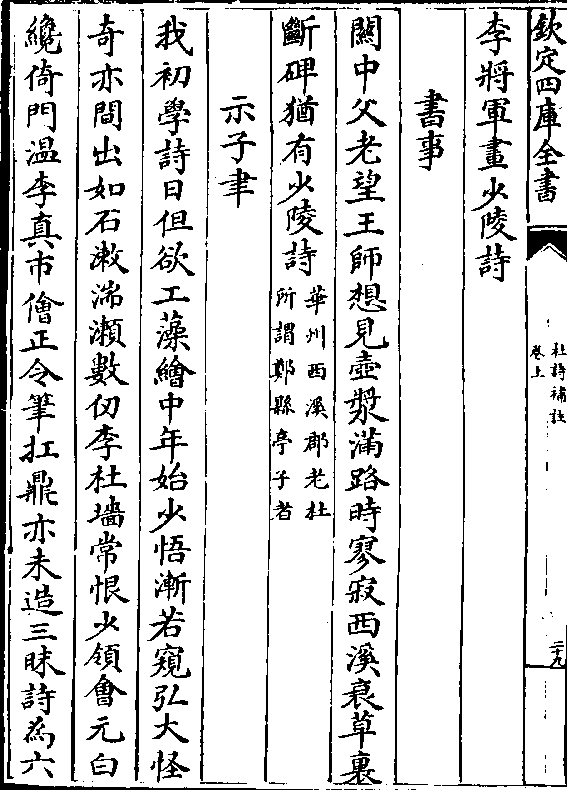 欽定四庫全書
杜詩補註
卷上
二十九
李將軍畫少陵詩
書事
闗中父老望王師想見壺漿滿路時寥寂西溪衰草裏
斷碑猶有少陵詩
華州西溪郡老杜
所謂鄭縣亭子者
示子聿
我初學詩日但欲工藻繪中年始少悟漸若窺弘大怪
奇亦間出如石漱湍瀨數仞李杜墻常恨少領會元白
纔倚門温李真市儈正令筆扛鼎亦未造三昧詩為六